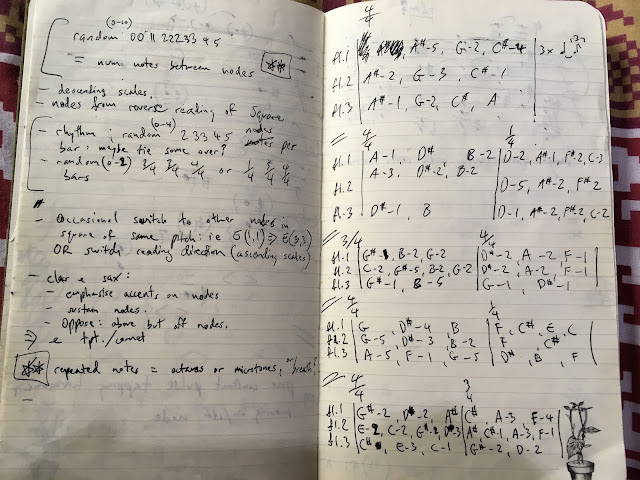 (0-10)
random 00 11 222 33 4 5
= num notes between nodes **
- descending scales.
- nodes from reverse reading of square
- rhythm : random (0-4) 2 33 4 5 nodes per
bar : maybe tie some over?
- random (0-2) 3/4 3/4 4/4 or 1/4 3/4 4/4
bars
- Occasional switch to other nodes in
square of same pitch: ie
OR switch reading direction (ascending scales)
- clar e sax:
- emphasise accents on nodes
- sustain nodes.
- Oppose: above but off nodes.
⇒ e tpt./cornet
** repeated notes = octaves or microtones, or breath?
4/4
fl.1 A#-5, G-2, C#-4 3x
fl.2 A#-2, G-3, C#-1
fl.3 A#-1, G-2, C#, A
4/4 1/4
fl.1 A-1, D# B-2 D-2, A#-1, F#-2, C-3
A-3, D#-2, B-2
fl.2 D-5, A#-2, F#2
fl.3 D#-1, B D-1, A#-2, F#2, C-2
3/4 4/4
fl.1 G# B-2, G-2 D#-2, A-2, F-1
fl.2 C-2, G#-5, B-2, G-2 D#-2, A-2, F-1
fl.3 G#-1, B-5 G-1, D#-1
4/4 4/4
fl.1 G, D#-4, B F, C#, E, C
fl.2 G-5, D#-3, B-2 F, C#
fl.3 A-5, F-1, G-5 D#, B, F
4/4 3/4
fl.1 G#-2, D#-2, A# C#, A-3, F-4
fl.2 E-2, C-2, G#-2, D#-3 A#, C#-1, A-3, F-1
fl.3 C#, E-3, C-1 G#-2, D-2